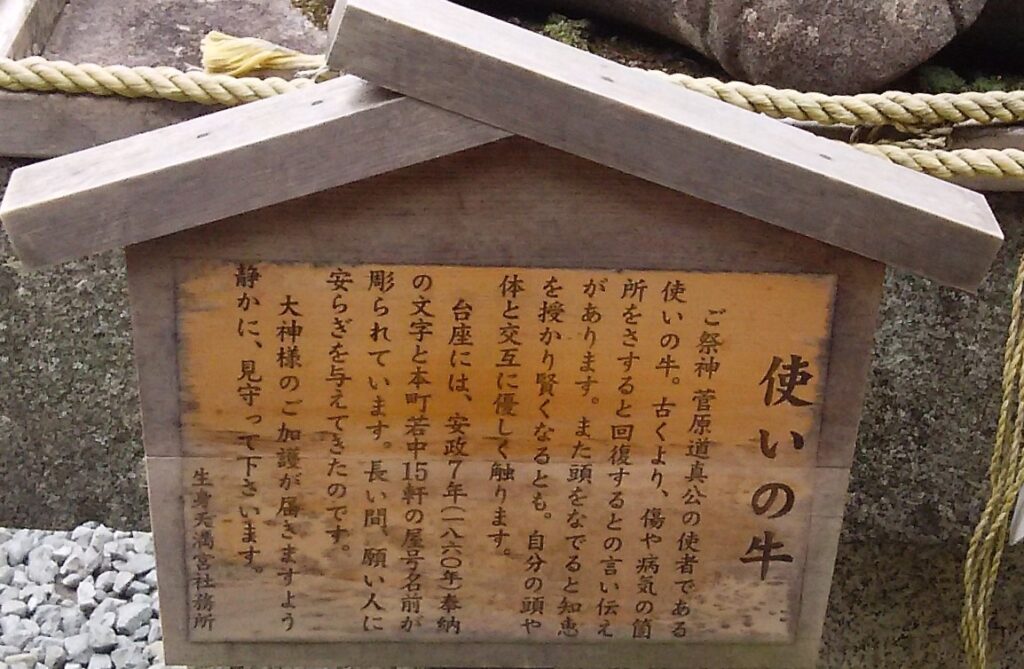 使いの牛
ご祭神 菅原道真公の使者である
使いの牛。古くより、傷や病気の箇
所をさすると回復するとの言い伝え
があります。また頭をなでると知恵
を授かり賢くなるとも。自分の頭や
体と交互に優しく触ります。
台座には、安政7年(一八六〇年)奉納
の文字と本町若中15軒の屋号名前が
彫られています。長い間、願い人に
安らぎを与えてきたのです。
大神様のご加護が届きますよう
静かに、見守って下さいます。
生身天満宮社務所